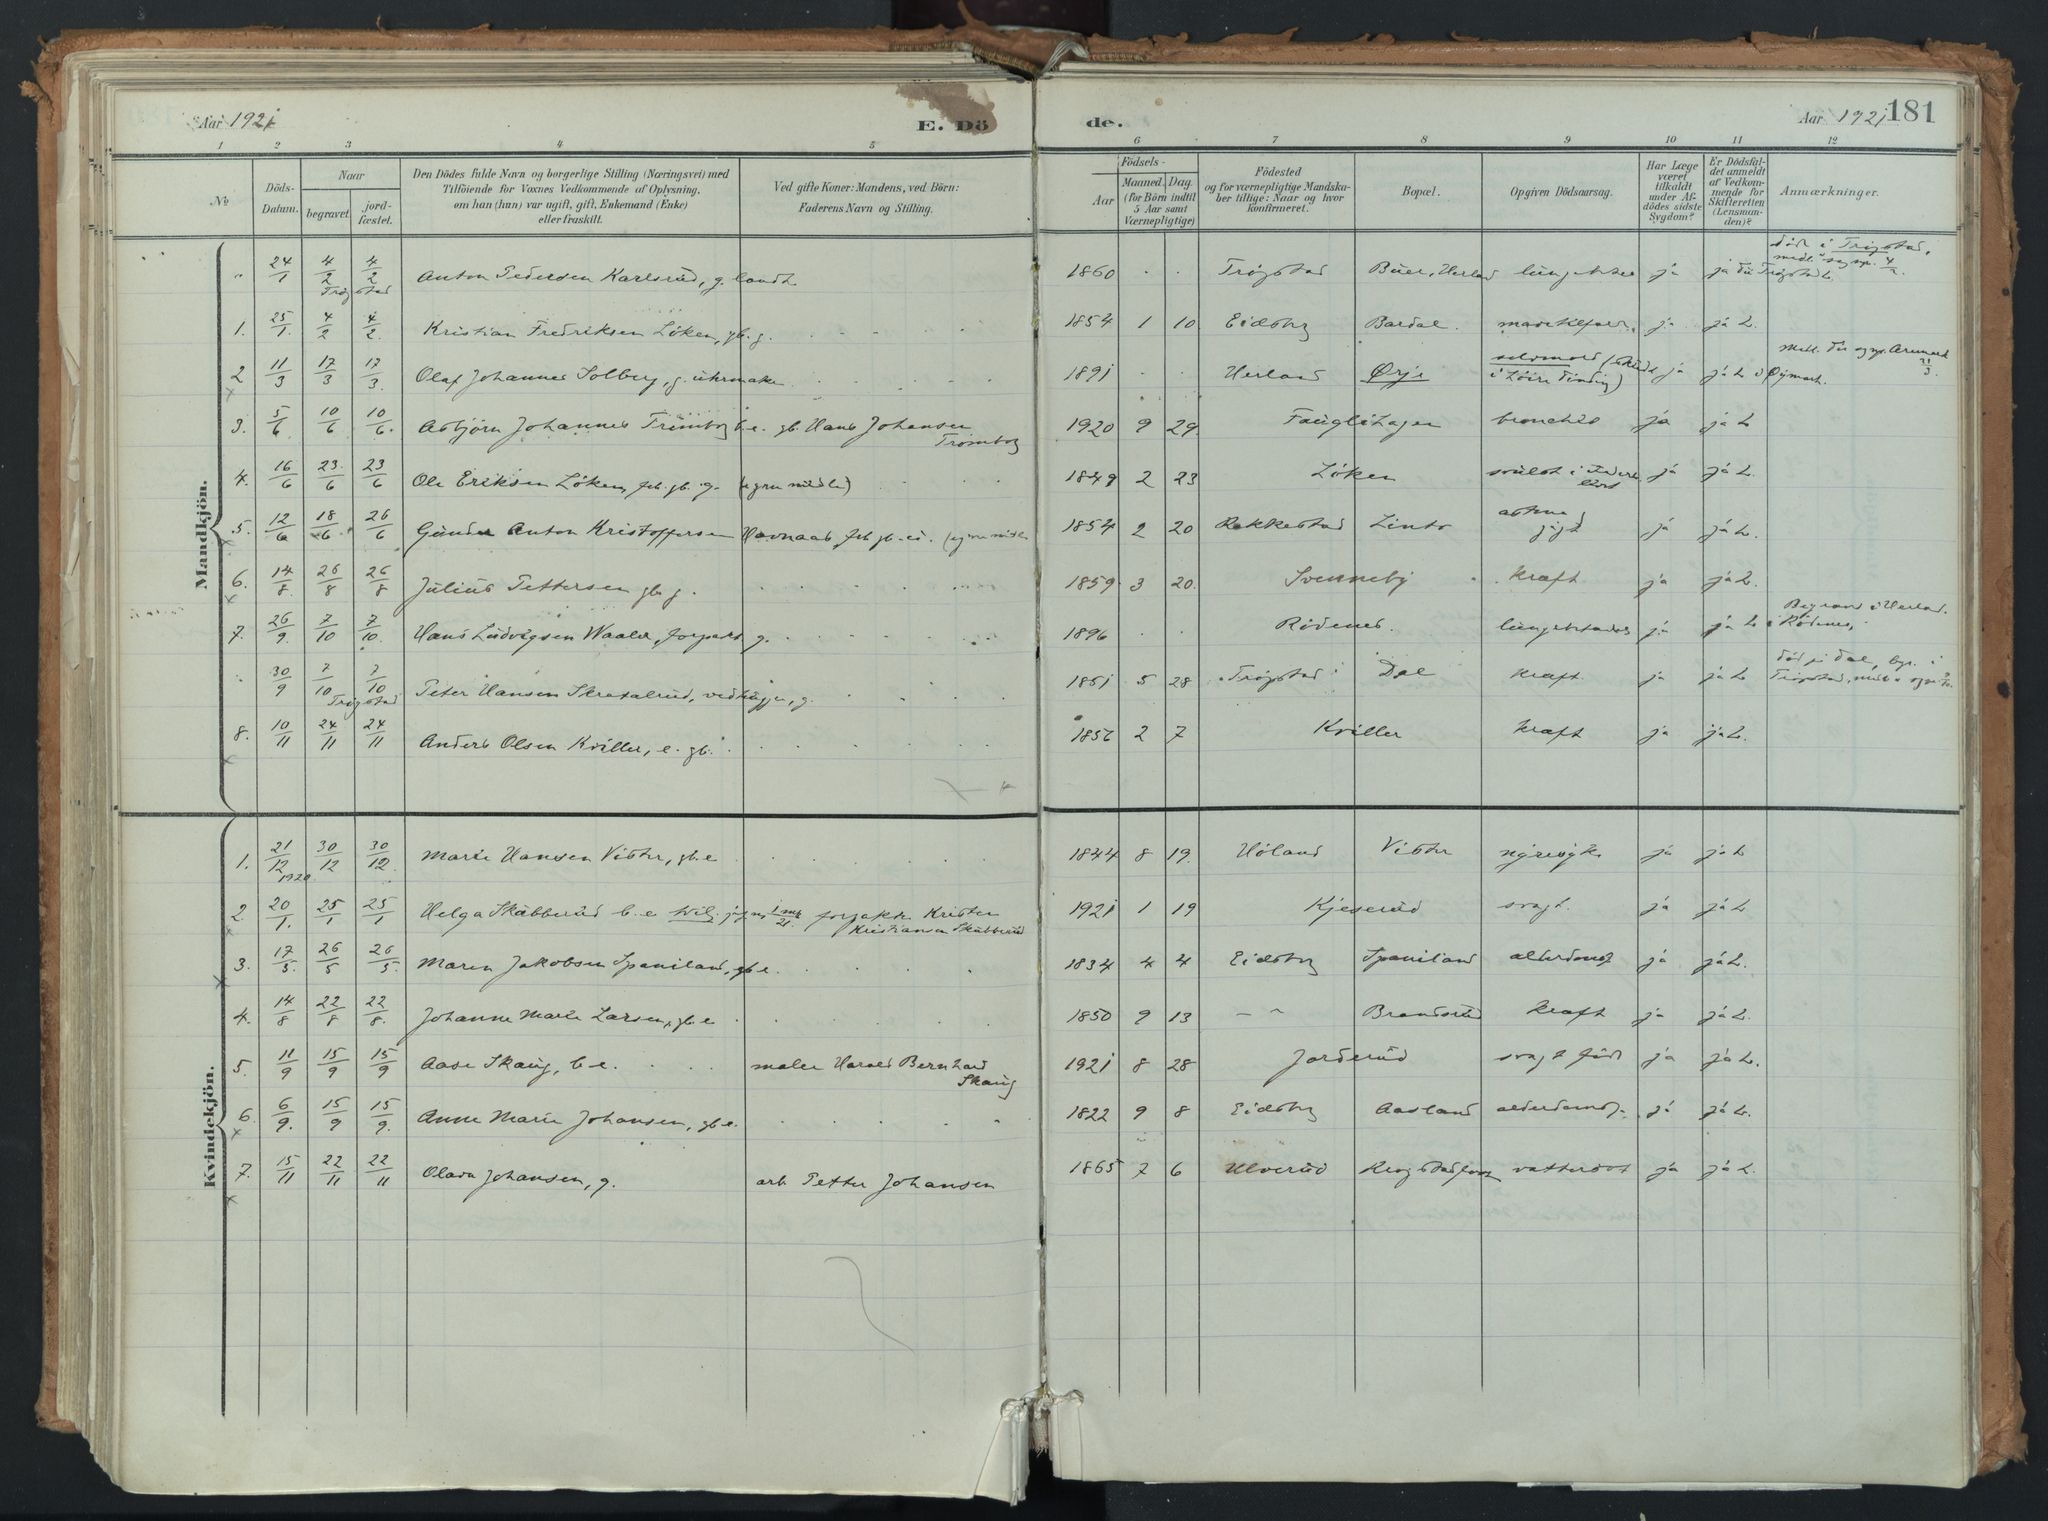 Aar 1921
E. Dö
de.
Aar 1921 181
1 2 3 4 5 6 7 8 9 10 11 12
№
Döds-Datum.
Naar
begravet.
jordfæstet.
Den Dödes fulde Navn og borgerlige Stilling (Næringsvei) med
Tilföiende for Voxnes Vedkommende af Oplysning,
om han (hun) var ugift, gift, Enkemand (Enke)
eller fraskilt.
Ved gifte Koner: Mandens, ved Börn:
Faderens Navn og Stilling.
Födsels-
Aar
Maaned. Dag.
(for Börn indtil
5 Aar samt
Værnepligtige)
Födested
og for værnepligtige Mandskaber tillige: Naar og hvor
konfirmeret.
Bopæl.
Opgiven Dödsaarsag.
Har Læge
været
tilkaldt
under Afdödes sidste
Sygdom?
Er Dödsfaldet anmeldt
af Vedkommende for
Skifteretten
(Lensmanden)?
Anmærkninger.
Mandkjön.
" 24/1 4/2 4/2 Anton Pedersen Karlsrud, g. landh. 1860 Trøgstad Buer, Herland ja ja
Trøgstad
død i Trøgstad,
1. 25/1. 4/2 4/2. Kristian Fredriksen Löken, gb. g. 1854 1 10 Eidsbrg Bardal. ja ja L.
2 11/3 17/3 17/3. Olaf Johannes Solberg, g. uhrmaker 1891 Herland Ørje selvmord ja ja L i Øymark.
3. 5/6 10/6 10/6. Asbjørn Johannes Trømborg b.e. gb. Hans Johansen 1920 9 29. Fuglihagen bronchit ja ja L
Trømborg
4. 16/6 23/6 23/6 Ole Eriksen Löken, frh. gb. g. (egne midler) 1849 2 23 Löken svulst i ja ja L.
5. 12/6 18/6 26/6 Gunder Anton Kristoffersen Havnaas frh. gb. (egne midler 1854 2 20 Rakkestad astma ja ja L.
6. 14/8 26/8 26/8 Julius Pettersen gb. g. 1859. 3 20. Svenneby kraft ja ja L.
7. 26/9. 7/10 7/10. Hans Ludvigsen Waaler, forpakt. g. 1896 Rødenes. ja ja L i Rødenes.
Begravd i Herland.
30/9 7/10 7/10 Peter Hansen Skraxalrud, vedhugger, g. 1851 5 28 Trøgstad Dal kraft. ja ja L
Trøgstad
død på Dal, bgr. i
Trøgstad,
8. 10/11 24/11 24/11 Anders Olsen Kviller, e. gb. 1856 2 7 Kviller kraft ja ja L.
Kvindekjön.
1. 21/12 30/12 30/12. Marie Hansen Vister, gb. e 1844 8 19. Höland Vister nyresyke ja ja L
1920.
2. 20/1. 25/1 25/1 Helga Skubberud b.e forpakter Krister 1921 1 19 Kjeserud svagt. ja ja L
Kristiansen Skubberud
3. 17/5. 26/5 26/5. Maren Jakobsen Spaniland, gb. e. 1834 4 4 Eidsbrg Spaniland alderdomsf. ja ja L.
4. 14/8 22/8 22/8. Johanne Marie Larsen, gb. e 1850 9 13 — " Brandsrud kraft ja ja L.
5. 11/9 15/9 15/9 Aase Skaug, b.e. maler Harald Bernhard 1921 8 28 Jorderud svagt født ja ja L.
Skaug
6. 6/9. 15/9 15/9. Anne Marie Johansen, gb. e. 1822 9 8 Eidsbrg Aasland alderdomsf. ja ja L.
7. 15/11 22/11 22/11 Olava Johansen, g. arb. Petter Johansen 1865 7 6 Ulverud vattersot ja ja L.